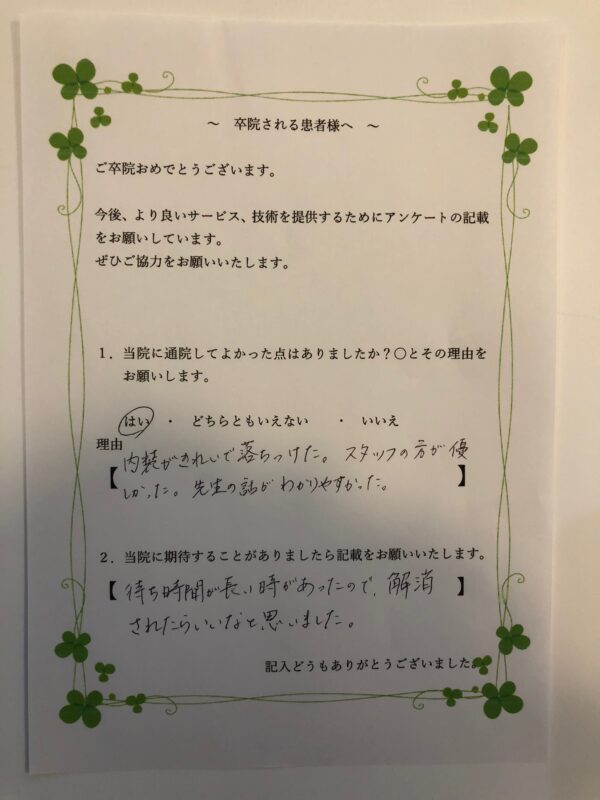 ～　卒院される患者様へ　～
ご卒院おめでとうございます。
今後、より良いサービス、技術を提供するためにアンケートの記載
をお願いしています。
ぜひご協力をお願いいたします。
１．当院に通院してよかった点はありましたか？〇とその理由を
お願いします。
はい　・　どちらともいえない　・　いいえ
理由
【内装がきれいで落ちつけた。スタッフの方が優
しかった。先生の話がわかりやすかった。】
２．当院に期待することがありましたら記載をお願いいたします。
【待ち時間が長い時があったので、解消】
されたらいいなと思いました。
記入どうもありがとうございました。